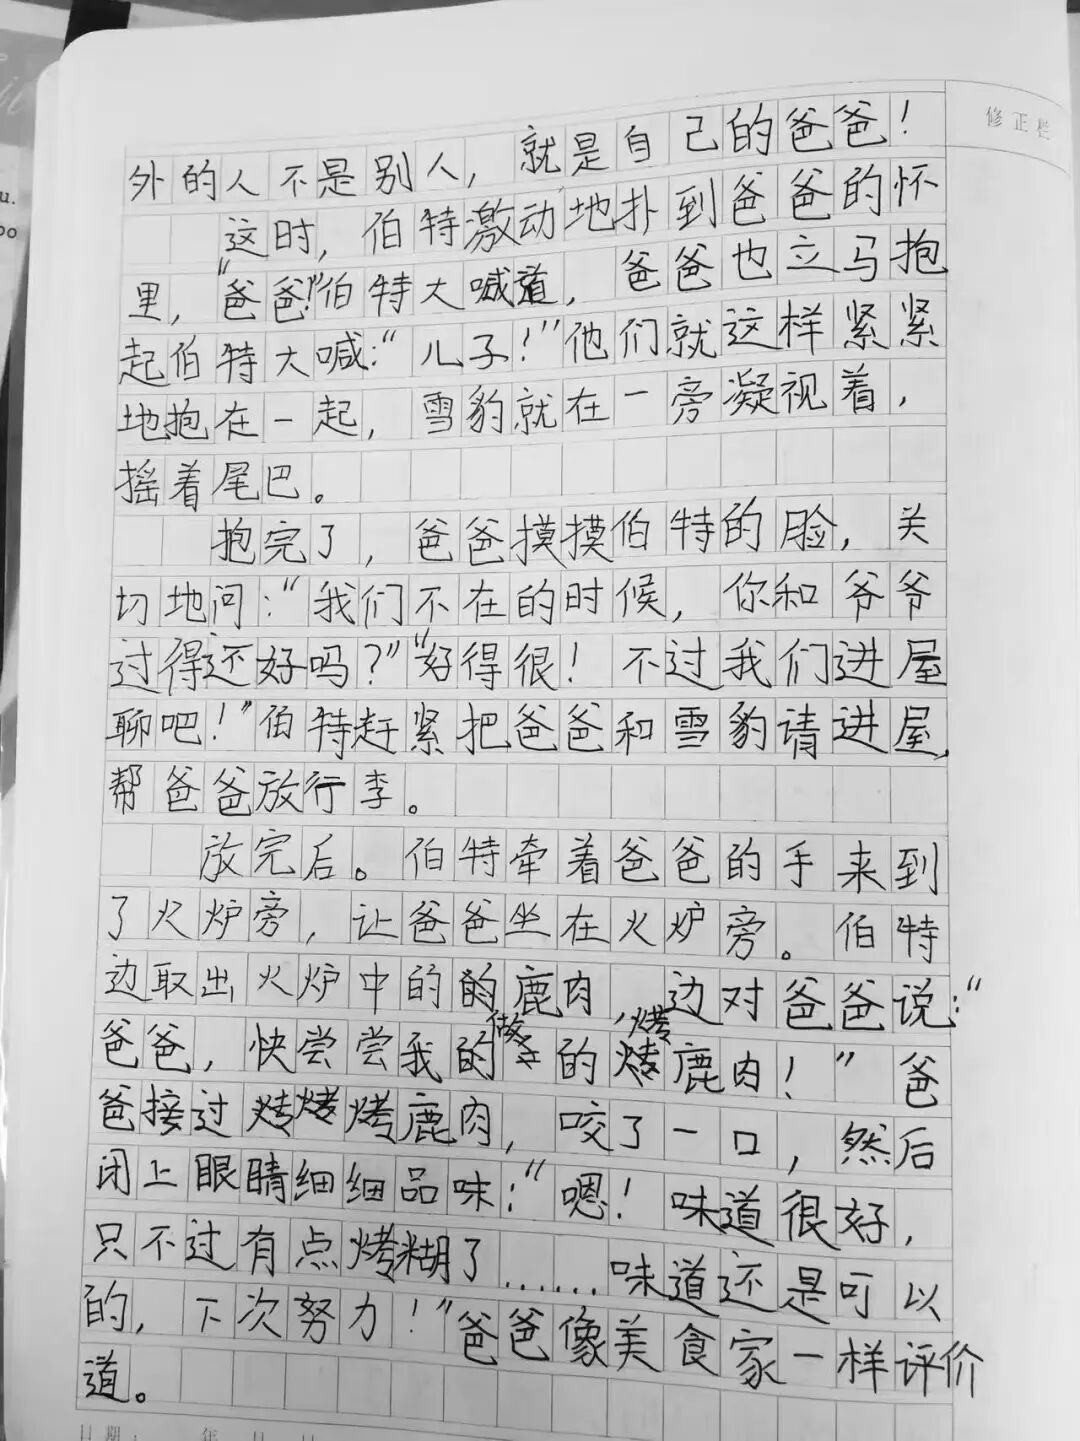 修正栏
外的人不是别人，就是自己的爸爸！
这时，伯特激动地扑到爸爸的怀
里，“爸爸！”伯特大喊道，爸爸也立马抱
起伯特大喊：“儿子！”他们就这样紧紧
地抱在一起，雪豹就在一旁凝视着，
摇着尾巴。
抱完了，爸爸摸摸伯特的脸，关
切地问：“我们不在的时候，你和爷爷
过得还好吗？”“好得很！不过我们进屋
聊吧！”伯特赶紧把爸爸和雪豹请进屋，
帮爸爸放行李。
放完后。伯特牵着爸爸的手来到
了火炉旁，让爸爸坐在火炉旁。伯特
边取出火炉中的鹿肉，边对爸爸说：“
爸爸，快尝尝我做的烤鹿肉！”爸
爸接过烤鹿肉，咬了一口，然后
闭上眼睛细细品味：“嗯！味道很好，
只不过有点烤糊了……味道还是可以
的，下次努力！”爸爸像美食家一样评价
道。